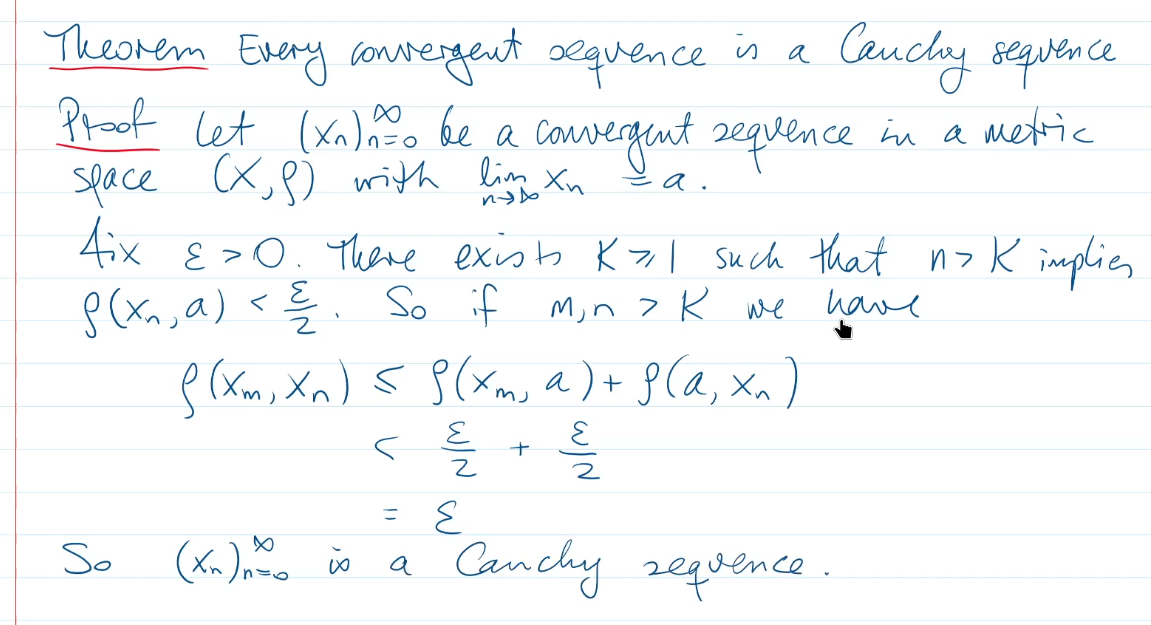 Theorem Every convergent sequence is a Cauchy sequence
Proof Let (xₙ)ₙ₌₀^∞ be a convergent sequence in a metric
space (X, ρ) with lim_{n→∞} xₙ = a.
Fix ε > 0. There exists K ⩾ 1 such that n > K implies
ρ(xₙ, a) < ε/2. So if m, n > K we have
ρ(xₘ, xₙ) ≤ ρ(xₘ, a) + ρ(a, xₙ)
< ε/2 + ε/2
= ε
So (xₙ)ₙ₌₀^∞ is a Cauchy sequence.